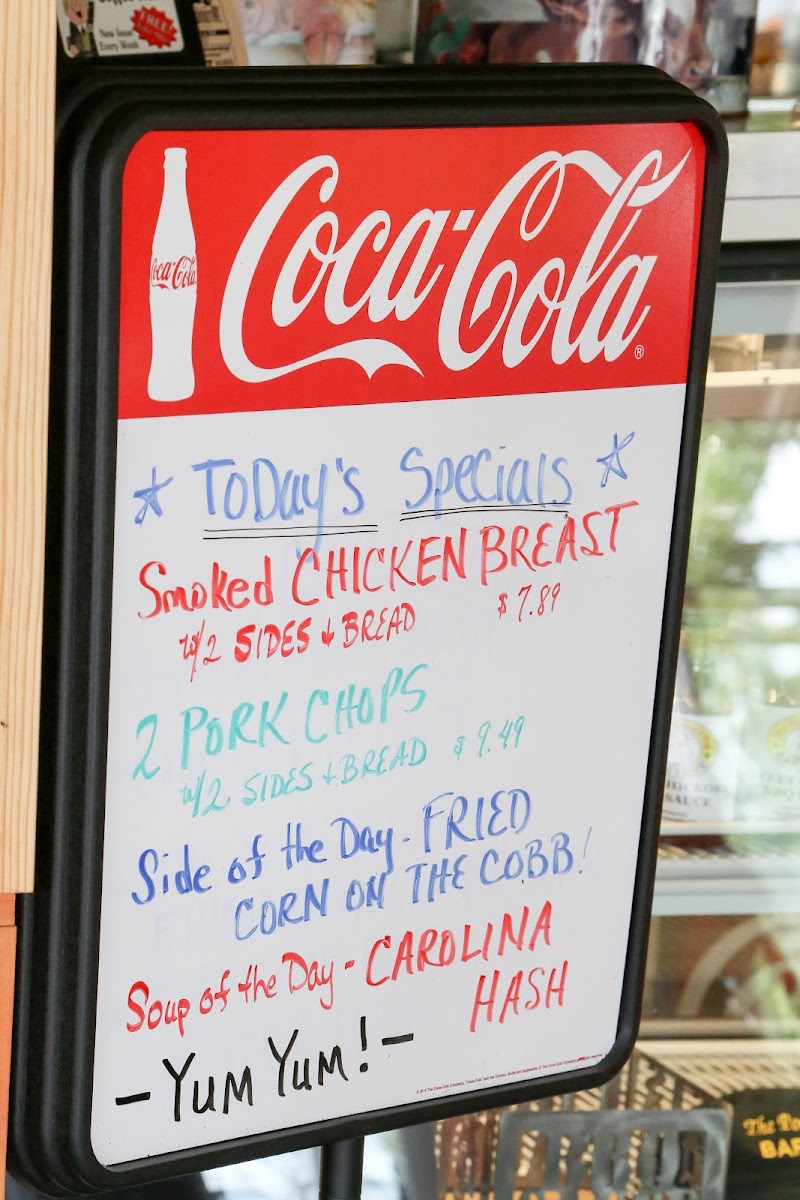 New Issue
Every Week
FREE
Coca-Cola
Coca-Cola®
ToDay's Specials
Smoked CHICKEN BREAST
w/2 SIDES & BREAD $7.89
2 PORK CHOPS
w/2 SIDES & BREAD $9.49
Side of the Day - FRIED
CORN ON THE COBB!
Soup of the Day - CAROLINA
HASH
- YUM YUM! -
SAUCE
The
BAR